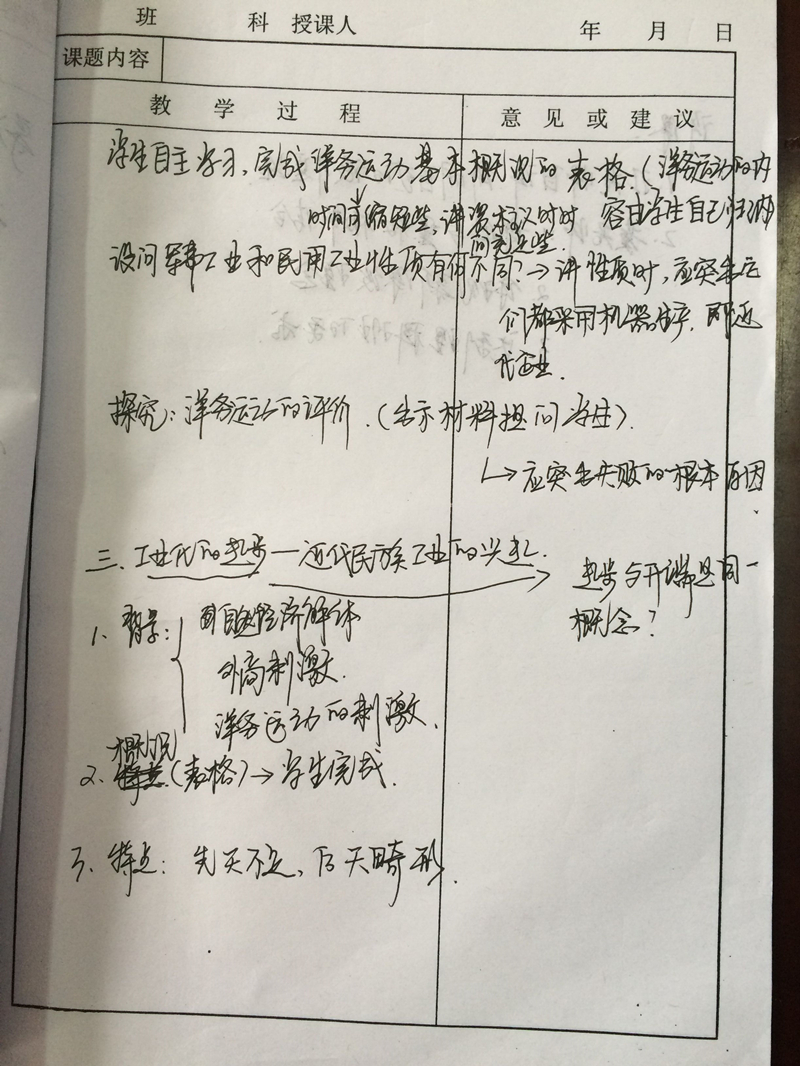 班 科 授课人 年 月 日
课题内容
教 学 过 程 意 见 或 建 议
学生自主学习,完成洋务运动基本概况的表格.(洋务运动的内
时间可缩短些,讲资本主义时时 容由学生自己归纳
间充足些.
设问军事工业和民用工业性质有何不同?→讲性质时,应突出它
们都采用机器生产,即近
代企业.
探究:洋务运动的评价.(出示材料提问学生).
↳应突出失败的根本原因
三、工业化的起步—近代民族工业的兴起. 起步与开端是同一
概念?
1、背景: 自然经济解体
外商刺激.
洋务运动的刺激.
概况
2、特点(表格)→学生完成.
3、特点:先天不足,后天畸形.